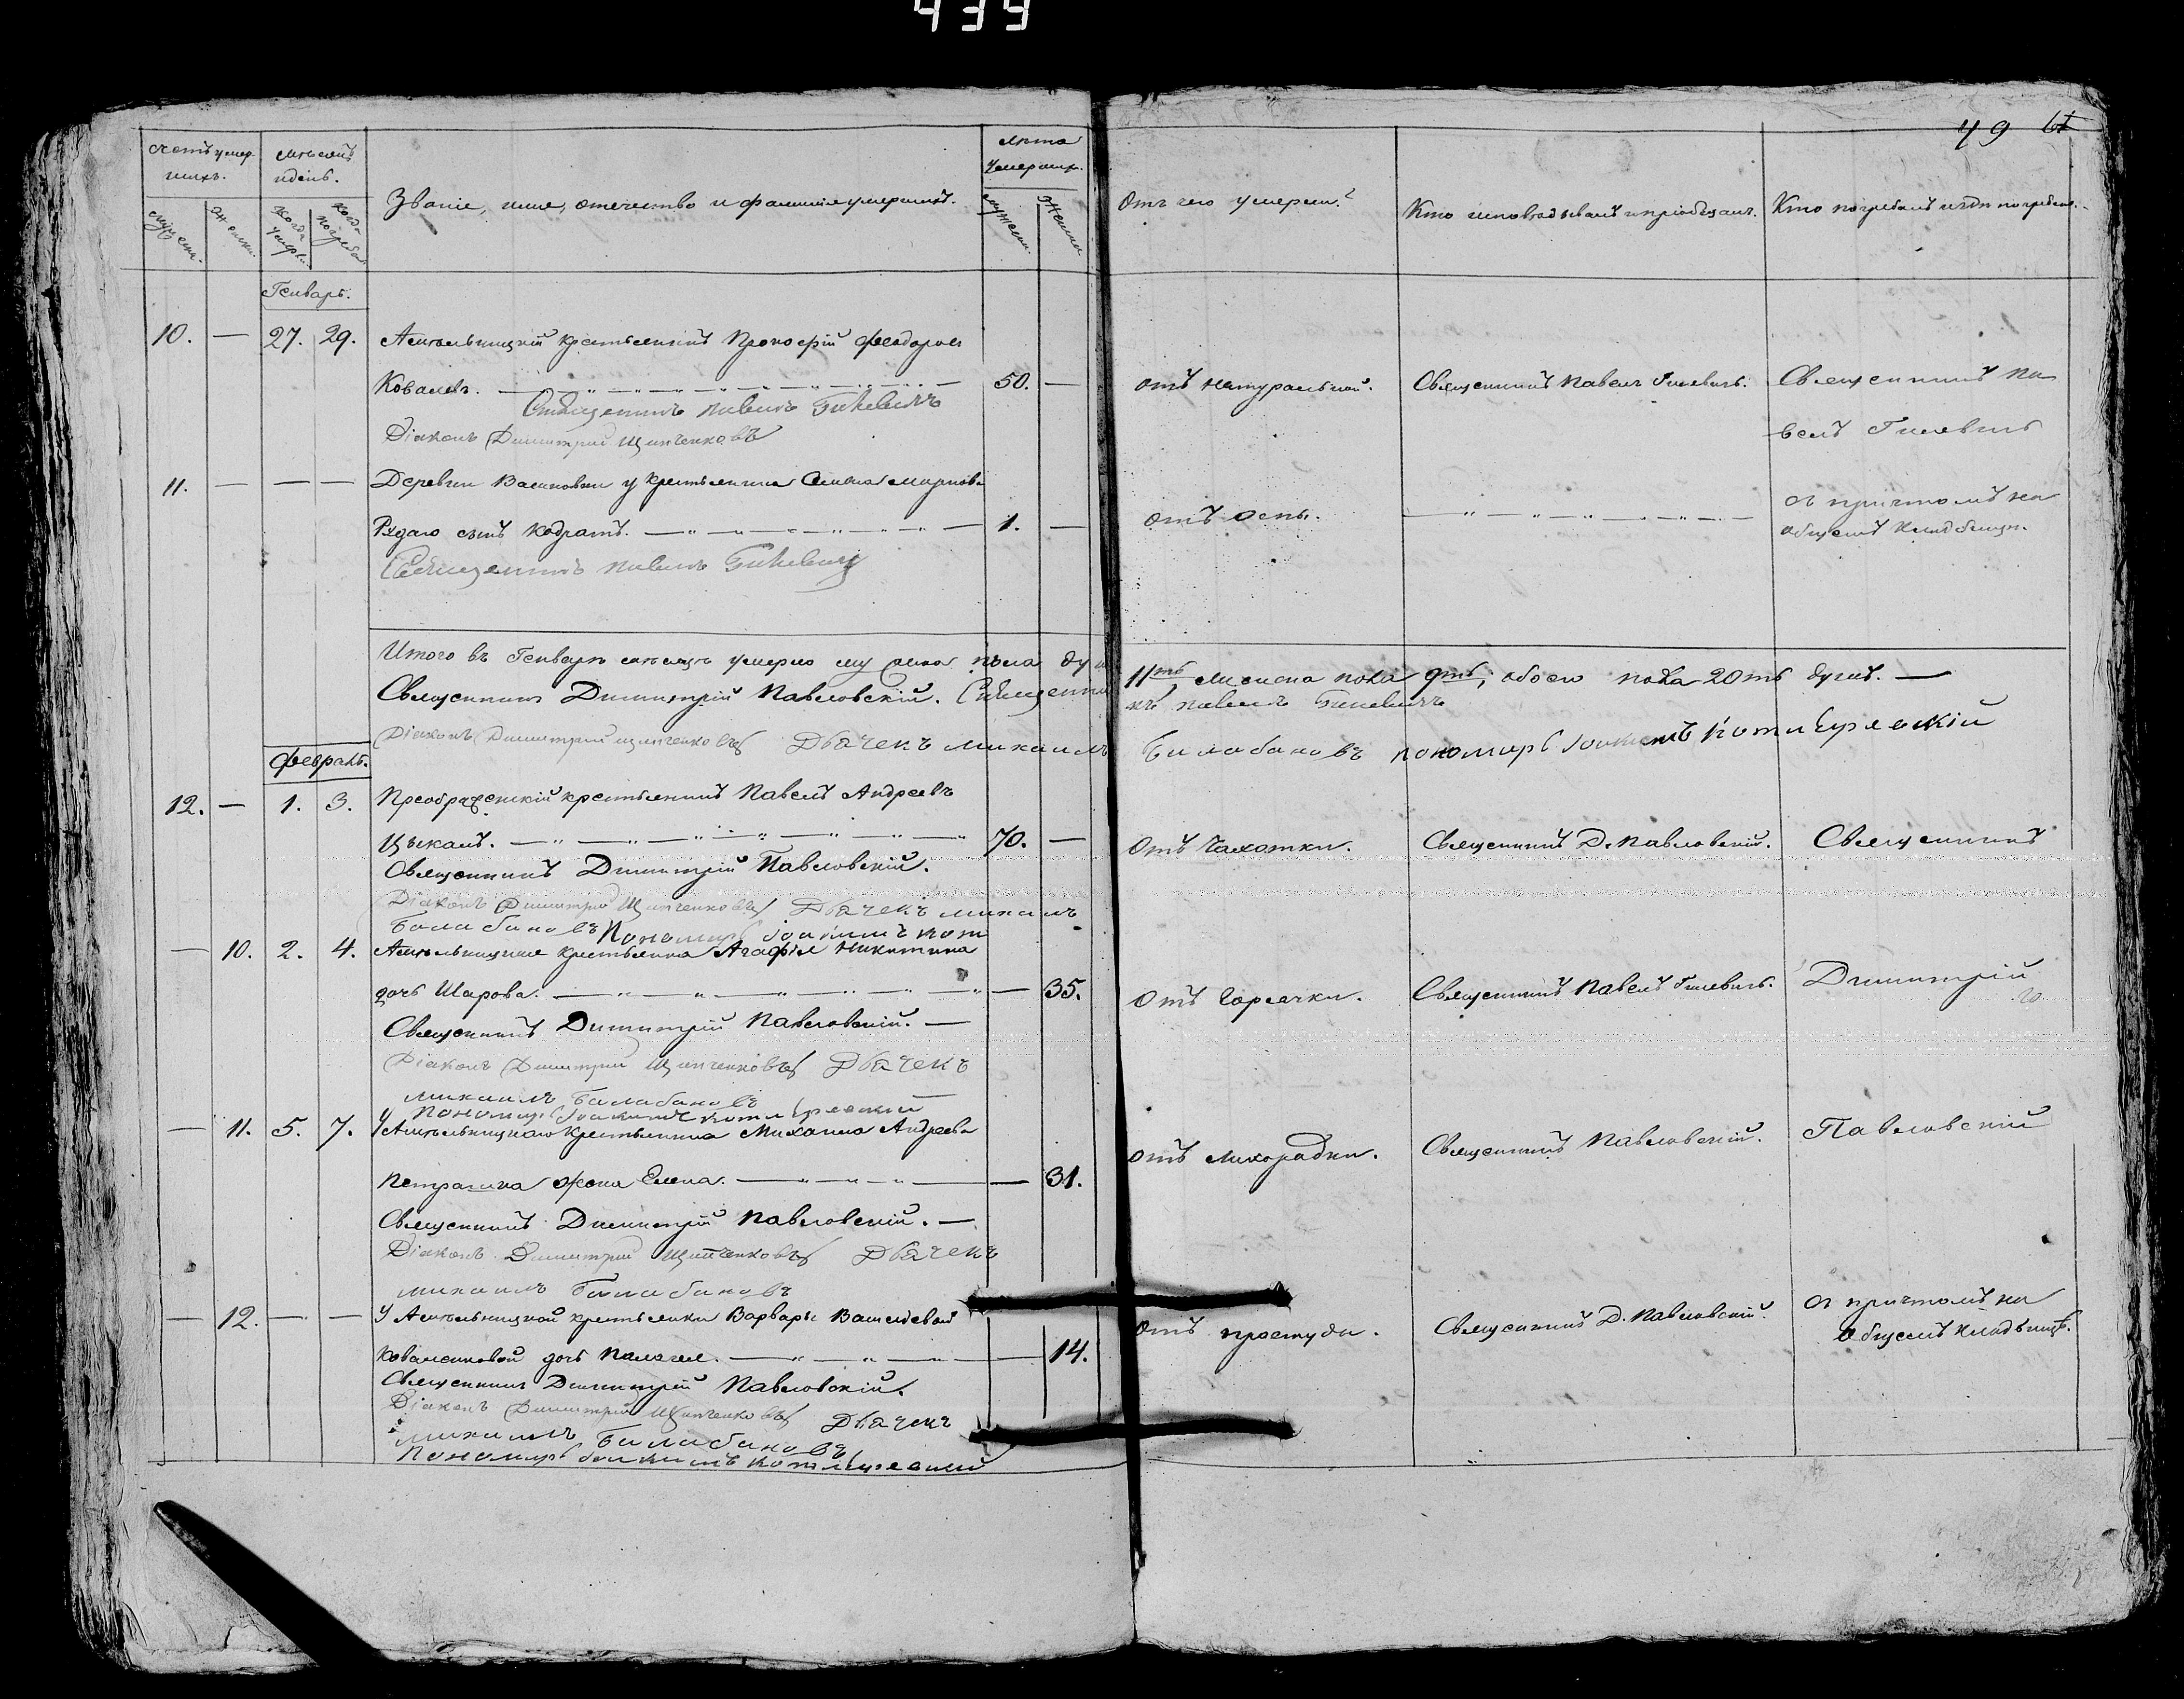 439
49
Счетъ умер-
шихъ.
Мѣсяцъ
и день.
Званіе, имя, отечество и фамилія умершихъ.
Лѣта
умершихъ.
Отъ чего умерли?
Кто исповѣдывалъ и пріобщалъ.
Кто погребалъ и гдѣ погребены.
мужеск.
женск.
когда умерли.
когда погребены
мужеск.
женск.
Генварь.
10. — 27. 29. Амѣльницкій крестьянинъ Прокофій Феодоровъ
Ковалевъ. 50. — отъ натуральной. Священникъ Павелъ Гилевичъ. Священникъ Па-
Священникъ Павелъ Гилевичъ
велъ Гилевичъ
Діаконъ Димитрій Щипченковъ
11. — — — Деревни Васиновки у крестьянина Семена Миронова
сынъ Кодратъ. 1. — отъ оспы.
съ причтомъ на
общемъ кладбищѣ.
Священникъ Павелъ Гилевичъ
Итого въ Генварѣ мѣсяцѣ умерло мужеска пола душ 11ть женска пола 9ть, обоего пола 20ть душъ. —
Священникъ Димитрій Павловскій. Священникъ Павелъ Гилевичъ
Діаконъ Димитрій Щипченковъ Дьячекъ Михаилъ Балабановъ Пономарь Іоакимъ Котляревскій
Февраль.
12. — 1. 3. Преображенскій крестьянинъ Павелъ Андреевъ
Цыкалъ. 70. — Отъ чахотки. Священникъ Д. Павловскій. Священникъ
Священникъ Димитрій Павловскій.
Діаконъ Димитрій Щипченковъ Дьячекъ Михаилъ
Балабановъ Пономарь Іоакимъ Кот
— 10. 2. 4. Амѣльницкая крестьянка Агафія Никитина
дочь Шарова. — 35. Отъ горячки. Священникъ Павелъ Гилевичъ. Димитрій
Священникъ Димитрій Павловскій. —
Діаконъ Димитрій Щипченковъ Дьячекъ
Михаилъ Балабановъ
Пономарь Іоакимъ Котляревскій
— 11. 5. 7. У Амѣльницкаго крестьянина Михаила Андреева
Петрашка жена Елена. — 31. отъ лихорадки. Священникъ Павловскій. Павловскій
Священникъ Димитрій Павловскій. —
Діаконъ Димитрій Щипченковъ Дьячекъ
Михаилъ Балабановъ
— 12. — — У Амѣльницкой крестьянки Варвары Васильевой
Коваленковой дочь Палагея. 14. Отъ простуды. Священникъ Д. Павловскій. съ причтомъ на
общемъ кладбищѣ.
Священникъ Димитрій Павловскій.
Діаконъ Димитрій Щипченковъ Дьячекъ
Михаилъ Балабановъ
Пономарь Іоакимъ Котляревскій